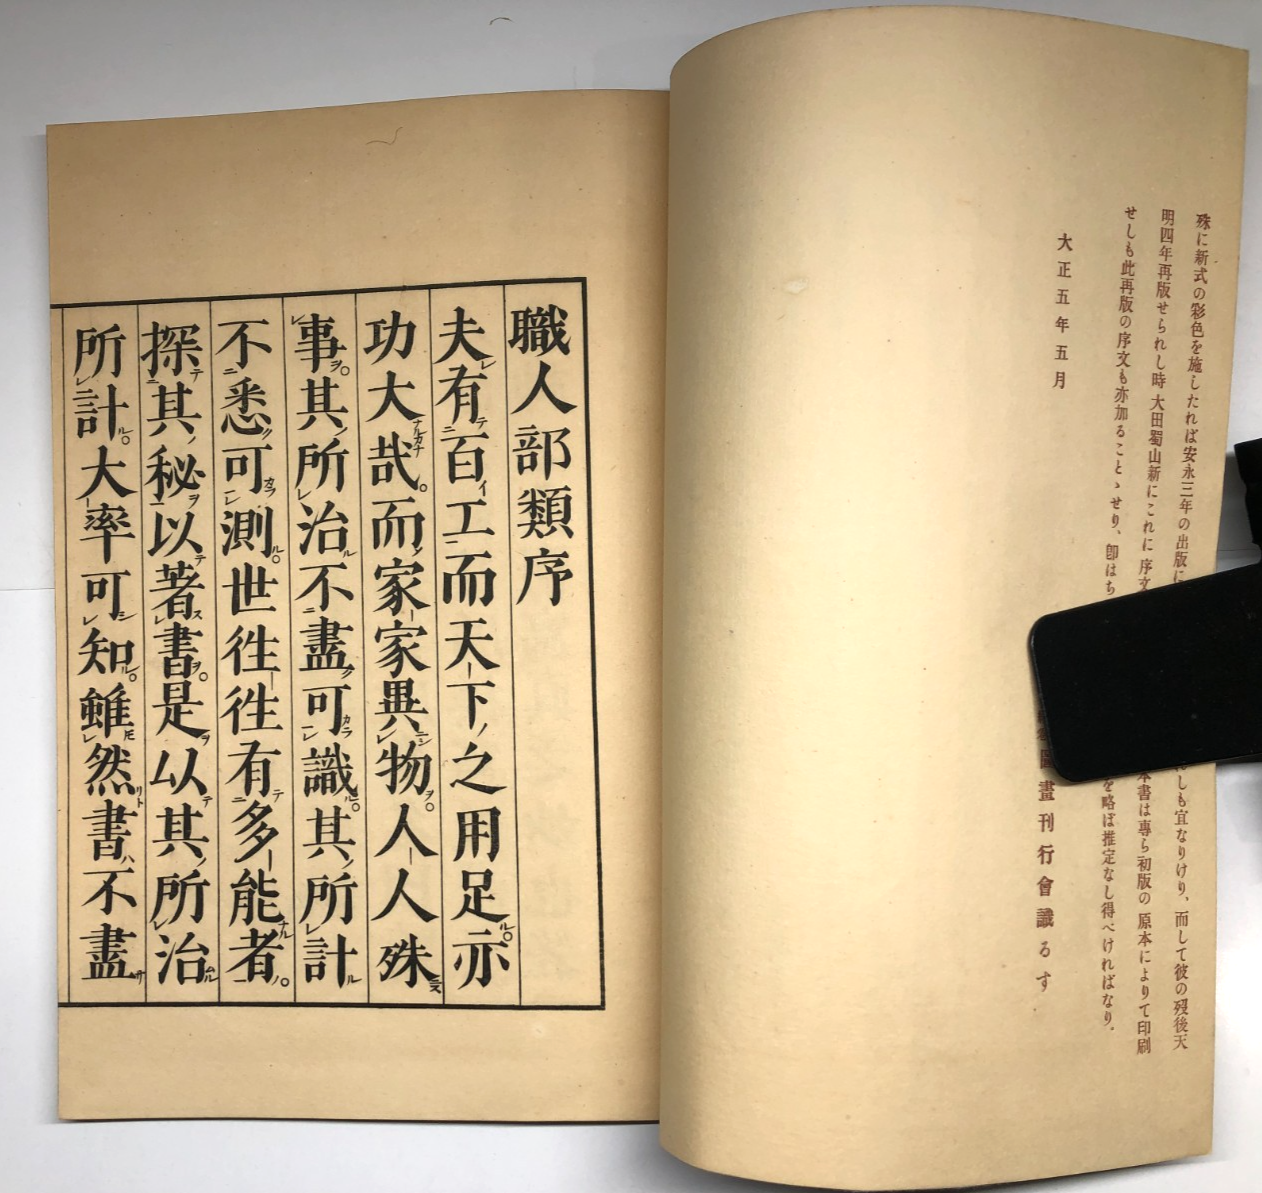 殊に新式の彩色を施したれば安永三年の出版に しも宜なりけり、而して彼の歿後天
明四年再版せられし時大田蜀山新にこれに序文 本書は専ら初版の原本によりて印刷
せしも此再版の序文も亦加ることゝせり、卽はち を略ぼ推定なし得べければなり。
大正五年五月
圖畫刊行會識るす
職人部類序
夫有百工而天下之用足亦
功大哉。而家家異物人人殊
事。其所治不盡可識。其所計
不悉可測。世徃徃有多能者。
探其秘以著書。是以其所治
所計。大率可知。雖然書不盡